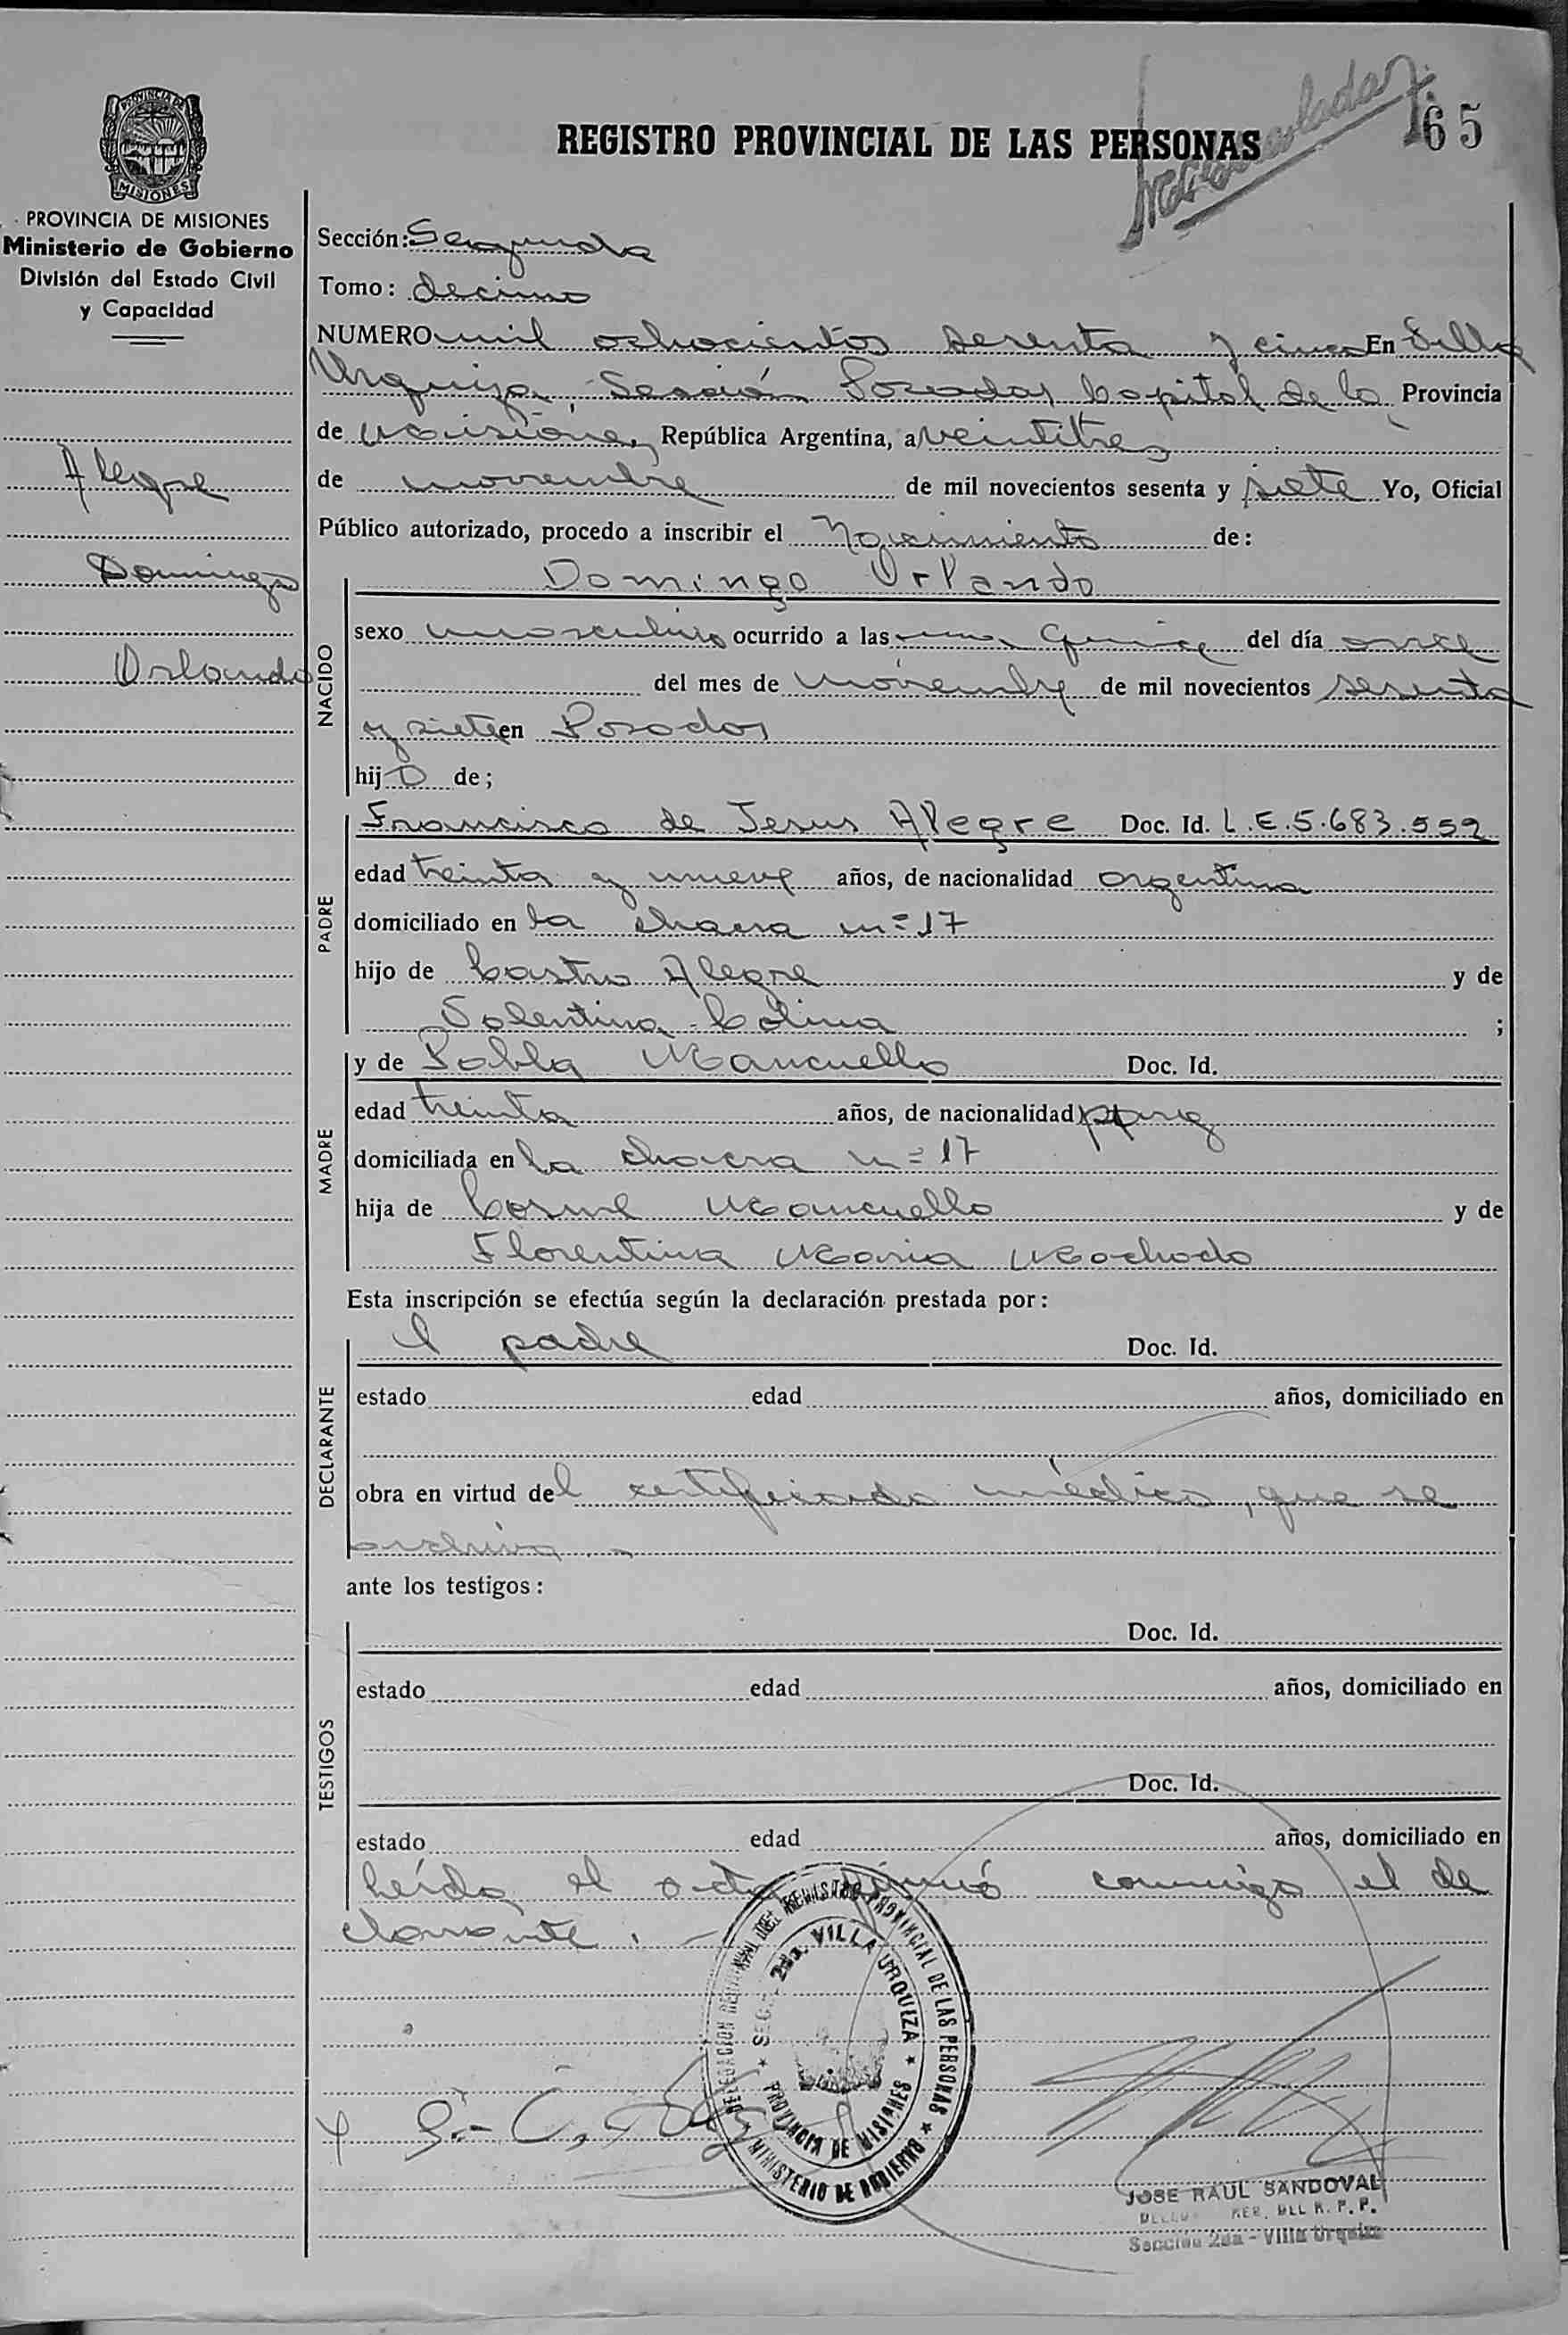 REGISTRO PROVINCIAL DE LAS PERSONAS
65
PROVINCIA DE MISIONES
Ministerio de Gobierno
División del Estado Civil
y Capacidad
Alegre
Domingo
Orlando
Sección: Segunda
Tomo: decimo
NUMERO mil ochocientos sesenta y cinco En Villa
Urquiza, Sección Posadas Capital de la Provincia
de Misiones, República Argentina, a veintitres
de noviembre de mil novecientos sesenta y siete Yo, Oficial
Público autorizado, procedo a inscribir el Nacimiento de:
NACIDO
Domingo Orlando
sexo masculino ocurrido a las una quince del día once
del mes de noviembre de mil novecientos sesenta
y siete en Posadas
hijo de;
PADRE
Francisco de Jesus Alegre Doc. Id. L.E.5.683.559
edad treinta y nueve años, de nacionalidad argentina
domiciliado en la chacra nº 17
hijo de Castro Alegre y de
Colina ;
MADRE
y de Pabla Mancuello Doc. Id.
edad treinta años, de nacionalidad
domiciliada en la chacra nº 17
hija de Cosme Mancuello y de
Florentina Maria Machado
Esta inscripción se efectúa según la declaración prestada por:
DECLARANTE
el padre Doc. Id.
estado edad años, domiciliado en
obra en virtud del certificado médico, que se
archiva.-
ante los testigos:
TESTIGOS
Doc. Id.
estado edad años, domiciliado en
Doc. Id.
estado edad años, domiciliado en
Leída el acta firmó conmigo el de
clarante.-
REGISTRO PROVINCIAL DE LAS PERSONAS
SECC. 2da. VILLA URQUIZA
PROVINCIA DE MISIONES
MINISTERIO DE GOBIERNO
JOSE RAUL SANDOVAL
R. P. P.
Sección 2da - Villa Urquiza